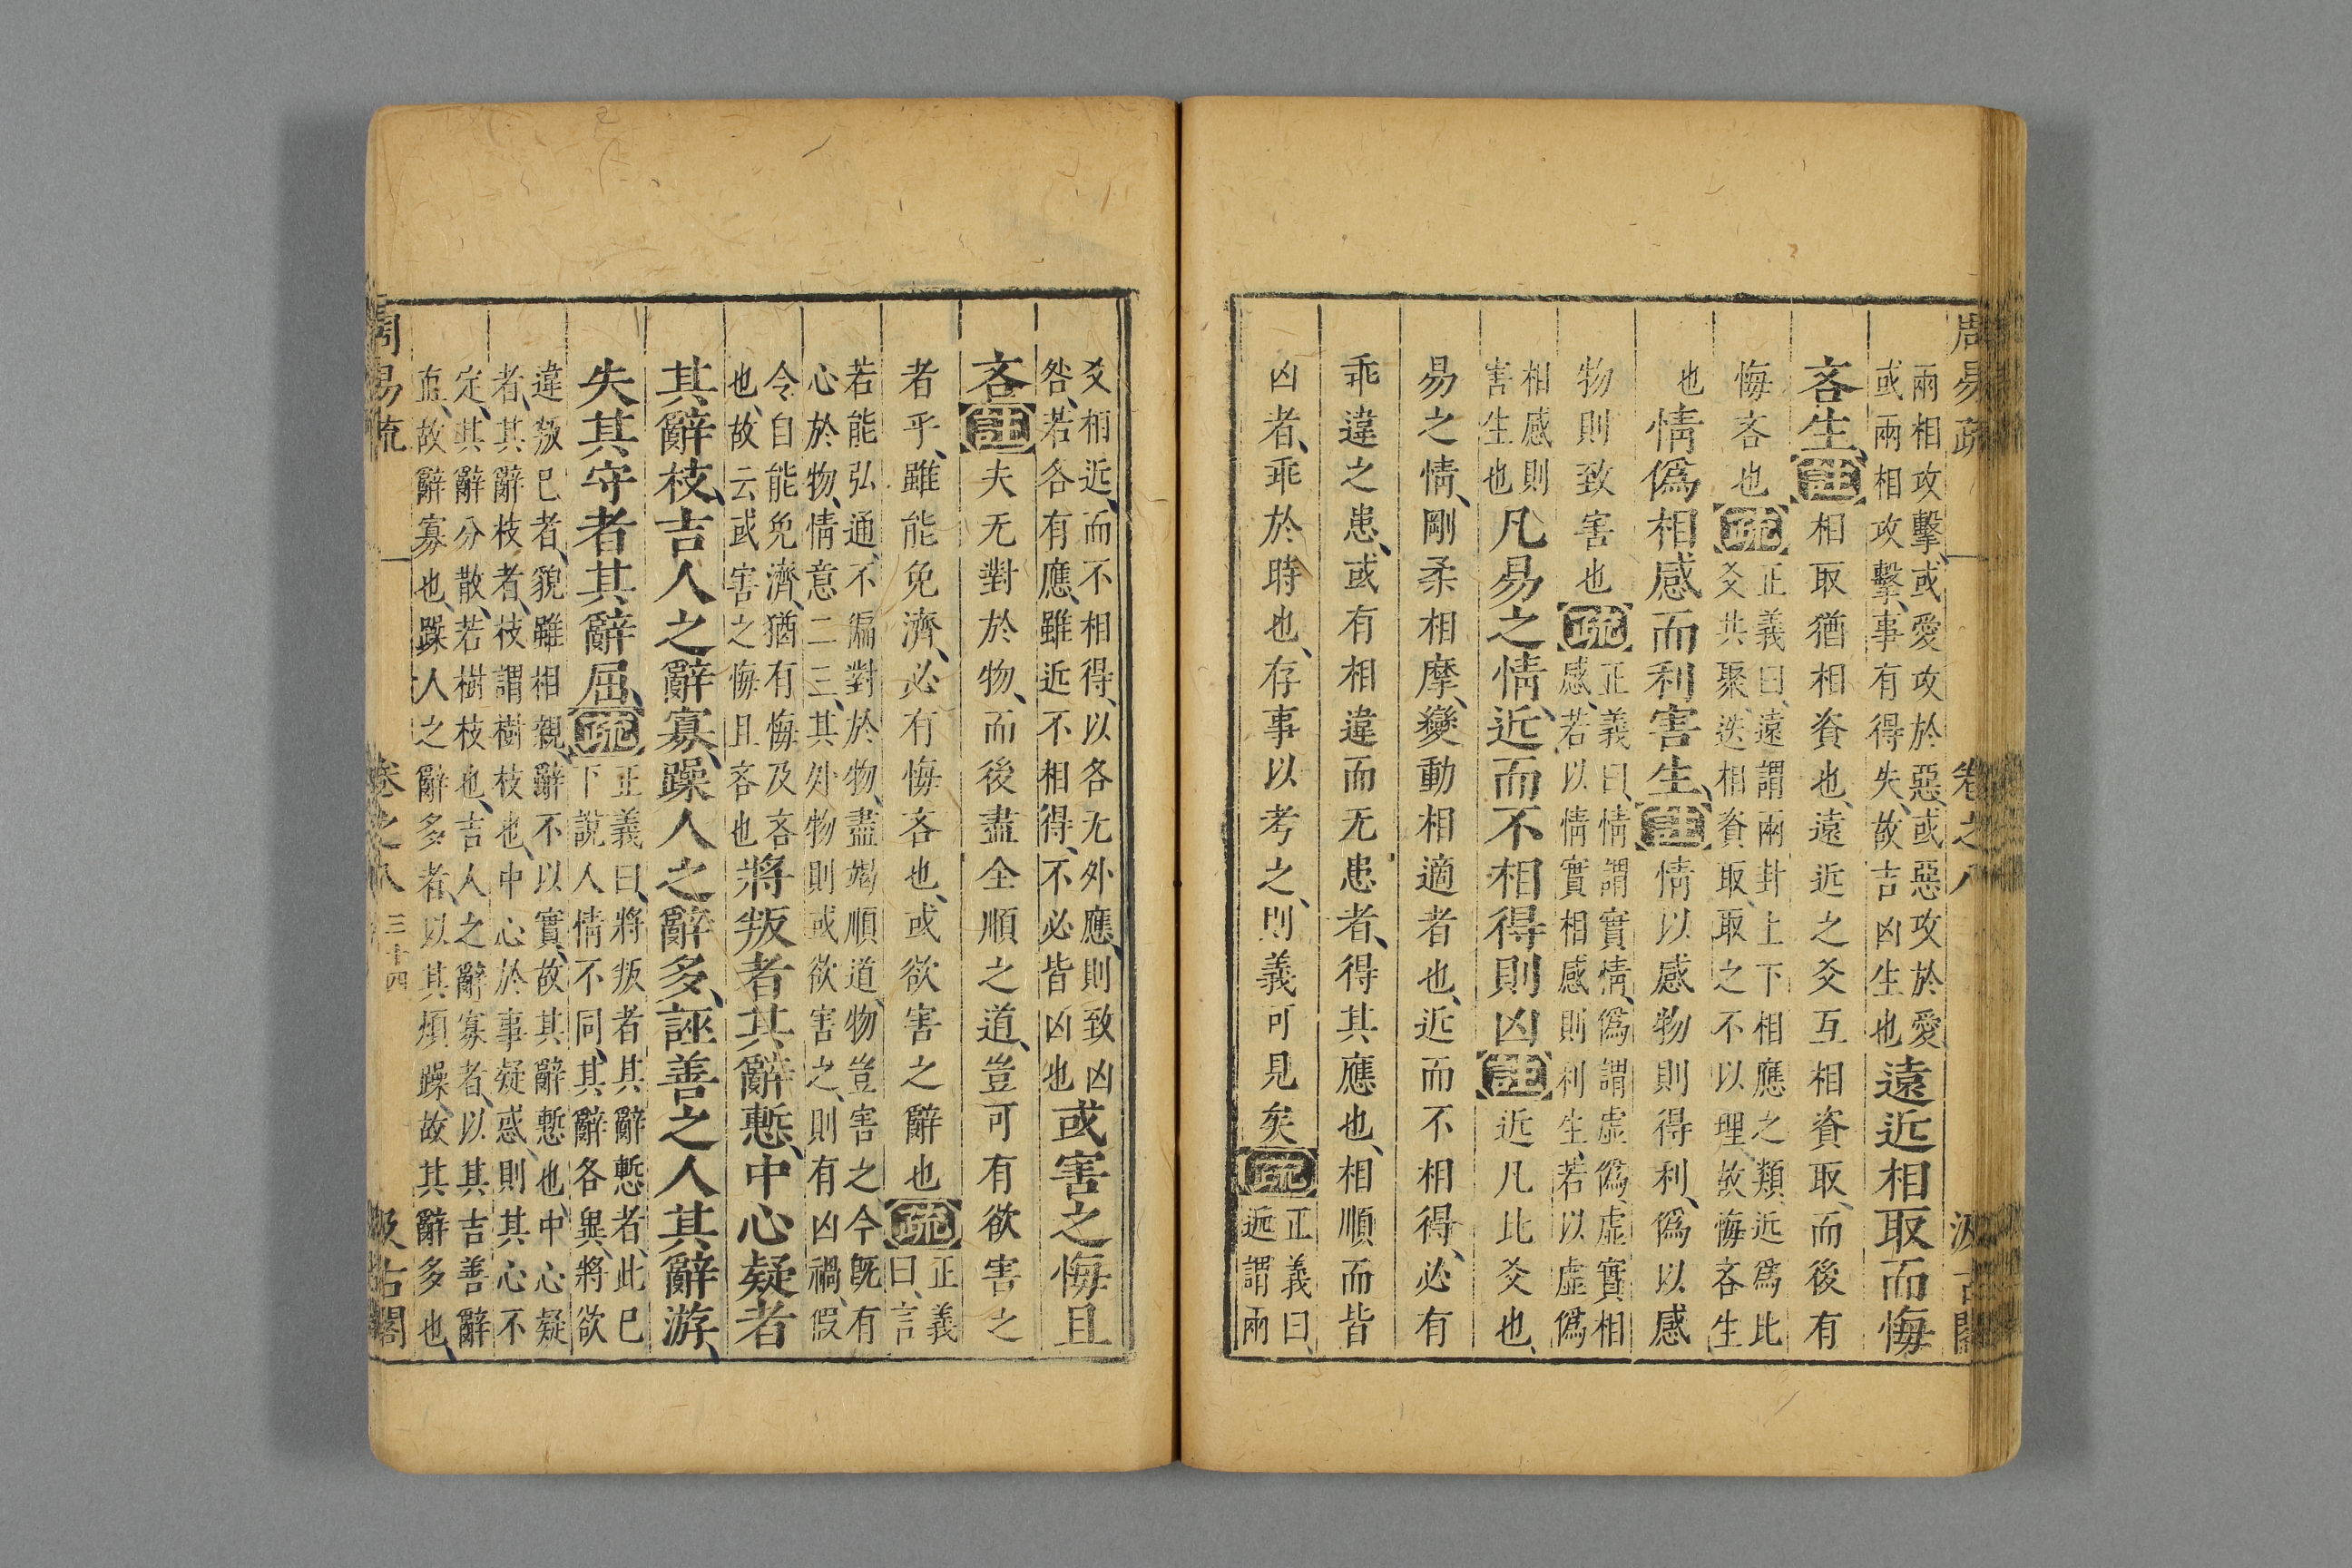 周易疏 卷之八 汲古閣
兩相攻擊或愛攻於惡或惡攻於愛
或兩相攻擊事有得失故吉凶生也
遠近相取而悔
吝生註相取猶相資也遠近之爻互相資取而後有
悔吝也疏
正義曰遠謂兩卦上下相應之類近爲比
爻共聚迭相資取取之不以理故悔吝生
也情僞相感而利害生註情以感物則得利僞以感
物則致害也疏
正義曰情謂實情僞謂虛僞虛實相
感若以情實相感則利生若以虛僞
相感則
害生也
凡易之情近而不相得則凶註近凡比爻也
易之情剛柔相摩變動相適者也近而不相得必有
乖違之患或有相違而无患者得其應也相順而皆
凶者乖於時也存事以考之則義可見矣疏
正義曰
近謂兩
爻相近而不相得以各无外應則致凶
咎若各有應雖近不相得不必皆凶也
或害之悔且
吝註夫无對於物而後盡全順之道豈可有欲害之
者乎雖能免濟必有悔吝也或欲害之辭也疏
正義
曰言
若能弘通不偏對於物盡竭順道物豈害之今旣有
心於物情意二三其外物則或欲害之則有凶禍假
令自能免濟猶有悔及吝
也故云或害之悔且吝也
將叛者其辭慙中心疑者
其辭枝吉人之辭寡躁人之辭多誣善之人其辭游
失其守者其辭屈疏
正義曰將叛者其辭慙者此已
下說人情不同其辭各異將欲
違叛已者貌雖相親辭不以實故其辭慙也中心疑
者其辭枝者枝謂樹枝也中心於事疑惑則其心不
定其辭分散若樹枝也吉人之辭寡者以其吉善辭
直故辭寡也躁人之辭多者以其煩躁故其辭多也
周易疏 卷之八 三十四 汲古閣